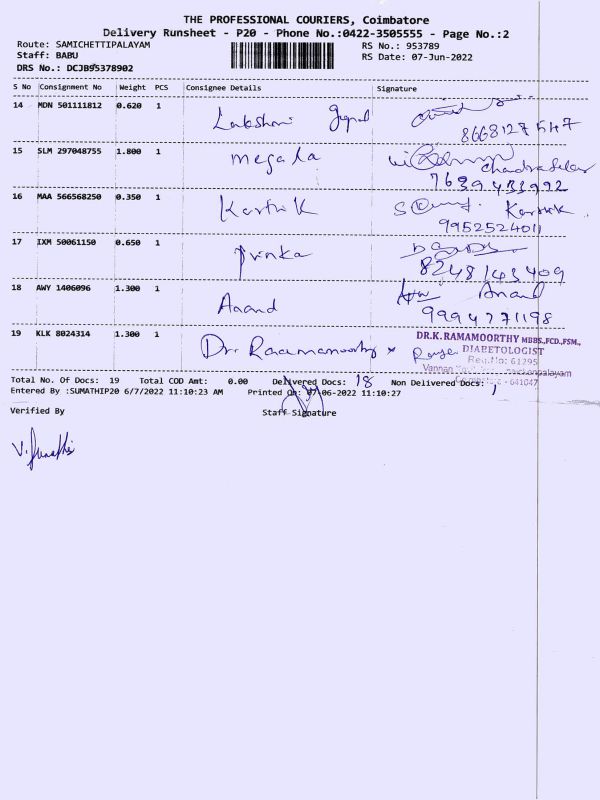 THE PROFESSIONAL COURIERS, Coimbatore
Delivery Runsheet - P20 - Phone No.:0422-3505555 - Page No.:2
Route: SAMICHETTIPALAYAM RS No.: 953789
Staff: BABU RS Date: 07-Jun-2022
DRS No.: DCJB95378902
S No Consignment No Weight PCS Consignee Details Signature
14 MDN 501111812 0.620 1 Lakshmi Gopal
8668127547
15 SLM 297048755 1.800 1 Megala Chandra Sekar
7639433992
16 MAA 566568250 0.350 1 Karthik Karthik
9952524011
17 IXM 50061150 0.650 1 Prinka
8248143409
18 AWY 1406096 1.300 1 Anand Anand
9994771198
19 KLK 8024314 1.300 1 Dr. Raamamoorthy DR.K.RAMAMOORTHY MBBS.,FCD.,FSM.,
DIABETOLOGIST
Reg.No: 61295
Vannan
- 641047
Total No. Of Docs: 19 Total COD Amt: 0.00 Delivered Docs: 18 Non Delivered Docs: 1
Entered By :SUMATHIP20 6/7/2022 11:10:23 AM Printed On: 07-06-2022 11:10:27
Verified By Staff Signature